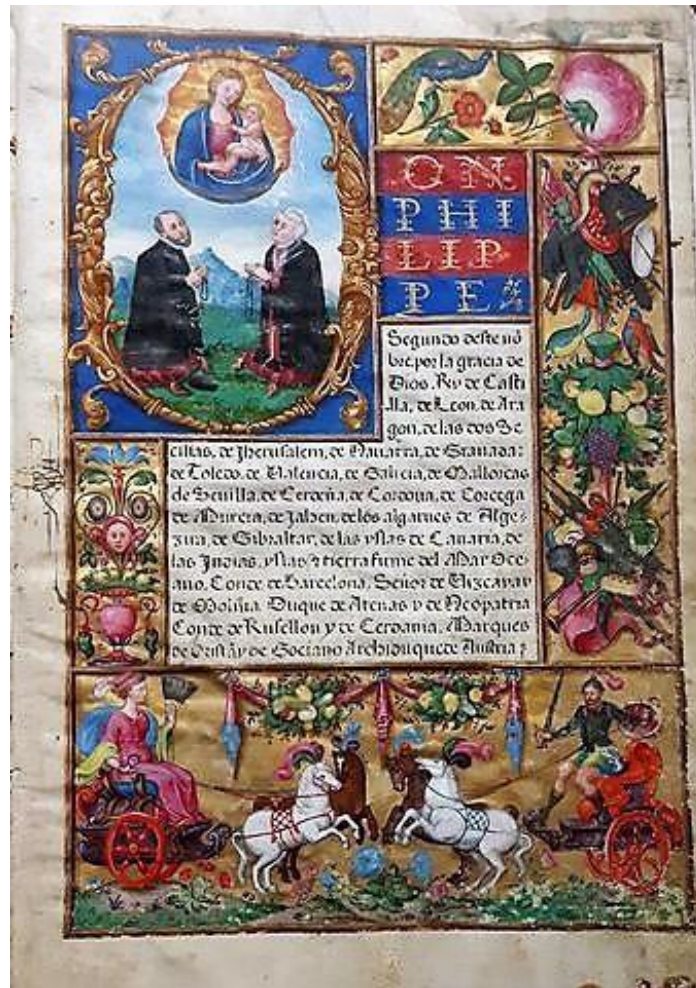 ON
PHI
LIP
PE
Segundo deste nõ
bre, por la gracia de
Dios. Rey de Casti
lla, de Leon, de Ara
gon, de las dos Se
cilias, de Jherusalem, de Nauarra, de Granada:
de Toledo, de Ualencia, de Galicia, de Mallorcas
de Seuilla, de Cerdeña, de Cordoua, de Corcega
de Murcia, de Jahen, de los algarues de Alge-
zira, de Gibraltar, de las yslas de Canaria, de
las Jndias, yslas & tierra firme del Mar Oce-
ano, Conde de Barcelona, Señor de Uizcaya y
de Molina. Duque de Atenas y de Neopatria
Conde de Rusellon y de Cerdania. Marques
de Oristã y de Gociano Archiduque de Austria